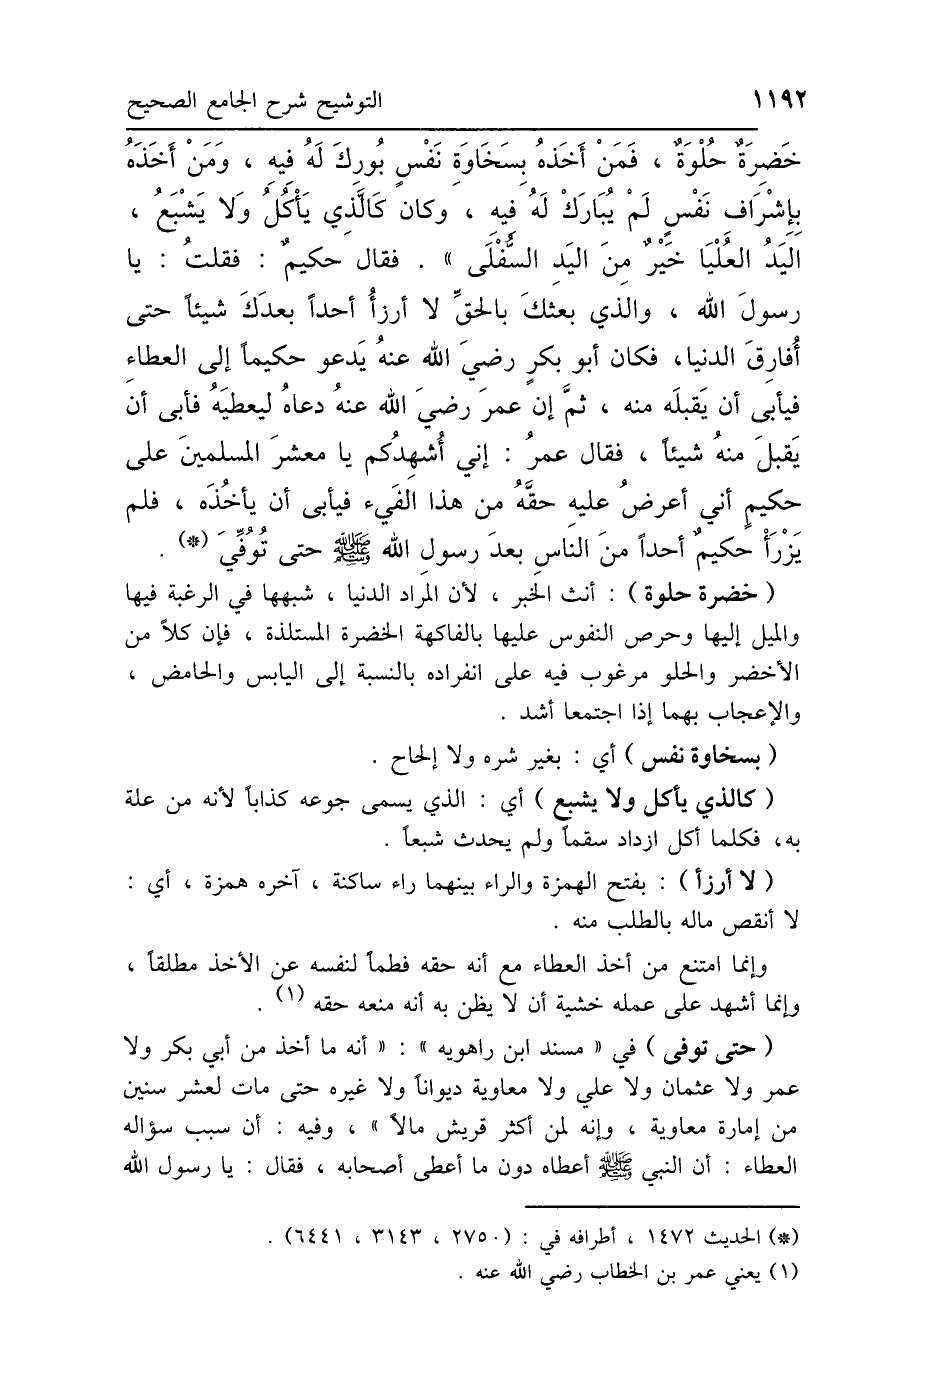 ١١٩٢ التوشيح شرح الجامع الصحيح
خَضِرَةٌ حُلْوَةٌ ، فَمَنْ أَخَذَهُ بِسَخَاوَةِ نَفْسٍ بُورِكَ لَهُ فِيهِ ، وَمَنْ أَخَذَهُ
بِإِشْرَافِ نَفْسٍ لَمْ يُبَارَكْ لَهُ فِيهِ ، وكان كَالَّذِي يَأْكُلُ وَلَا يَشْبَعُ ،
اليَدُ العُلْيَا خَيْرٌ مِنَ اليَدِ السُّفْلَى » . فقال حكيمٌ : فقلتُ : يا
رسولَ الله ، والذي بعثكَ بالحقِّ لا أرزأُ أحداً بعدَكَ شيئاً حتى
أُفارِقَ الدنيا، فكان أبو بكرٍ رضيَ الله عنهُ يَدعو حكيماً إلى العطاءِ
فيأبى أن يَقبلَه منه ، ثمَّ إن عمرَ رضيَ الله عنهُ دعاهُ ليعطيَهُ فأبى أن
يَقبلَ منهُ شيئاً ، فقال عمرُ : إني أُشهِدُكم يا معشرَ المسلمينَ على
حكيمٍ أني أعرضُ عليهِ حقَّهُ من هذا الفَيء فيأبى أن يأخُذَه ، فلم
يَرْزَأْ حكيمٌ أحداً منَ الناسِ بعدَ رسولِ الله ﷺ حتى تُوُفِّيَ (*) .
( خضرة حلوة ) : أنث الخبر ، لأن المراد الدنيا ، شبهها في الرغبة فيها
والميل إليها وحرص النفوس عليها بالفاكهة الخضرة المستلذة ، فإن كلاً من
الأخضر والحلو مرغوب فيه على انفراده بالنسبة إلى اليابس والحامض ،
والإعجاب بهما إذا اجتمعا أشد .
( بسخاوة نفس ) أي : بغير شره ولا إلحاح .
( كالذي يأكل ولا يشبع ) أي : الذي يسمى جوعه كذاباً لأنه من علة
به، فكلما أكل ازداد سقماً ولم يحدث شبعاً .
( لا أرزأ ) : بفتح الهمزة والراء بينهما راء ساكنة ، آخره همزة ، أي :
لا أنقص ماله بالطلب منه .
وإنما امتنع من أخذ العطاء مع أنه حقه فطماً لنفسه عن الأخذ مطلقاً ،
وإنما أشهد على عمله خشية أن لا يظن به أنه منعه حقه (١) .
( حتى توفى ) في « مسند ابن راهويه » : « أنه ما أخذ من أبي بكر ولا
عمر ولا عثمان ولا علي ولا معاوية ديواناً ولا غيره حتى مات لعشر سنين
من إمارة معاوية ، وإنه لمن أكثر قريش مالاً » ، وفيه : أن سبب سؤاله
العطاء : أن النبي ﷺ أعطاه دون ما أعطى أصحابه ، فقال : يا رسول الله
(*) الحديث ١٤٧٢ ، أطرافه في : (٢٧٥٠ ، ٣١٤٣ ، ٦٤٤١) .
(١) يعني عمر بن الخطاب رضي الله عنه .